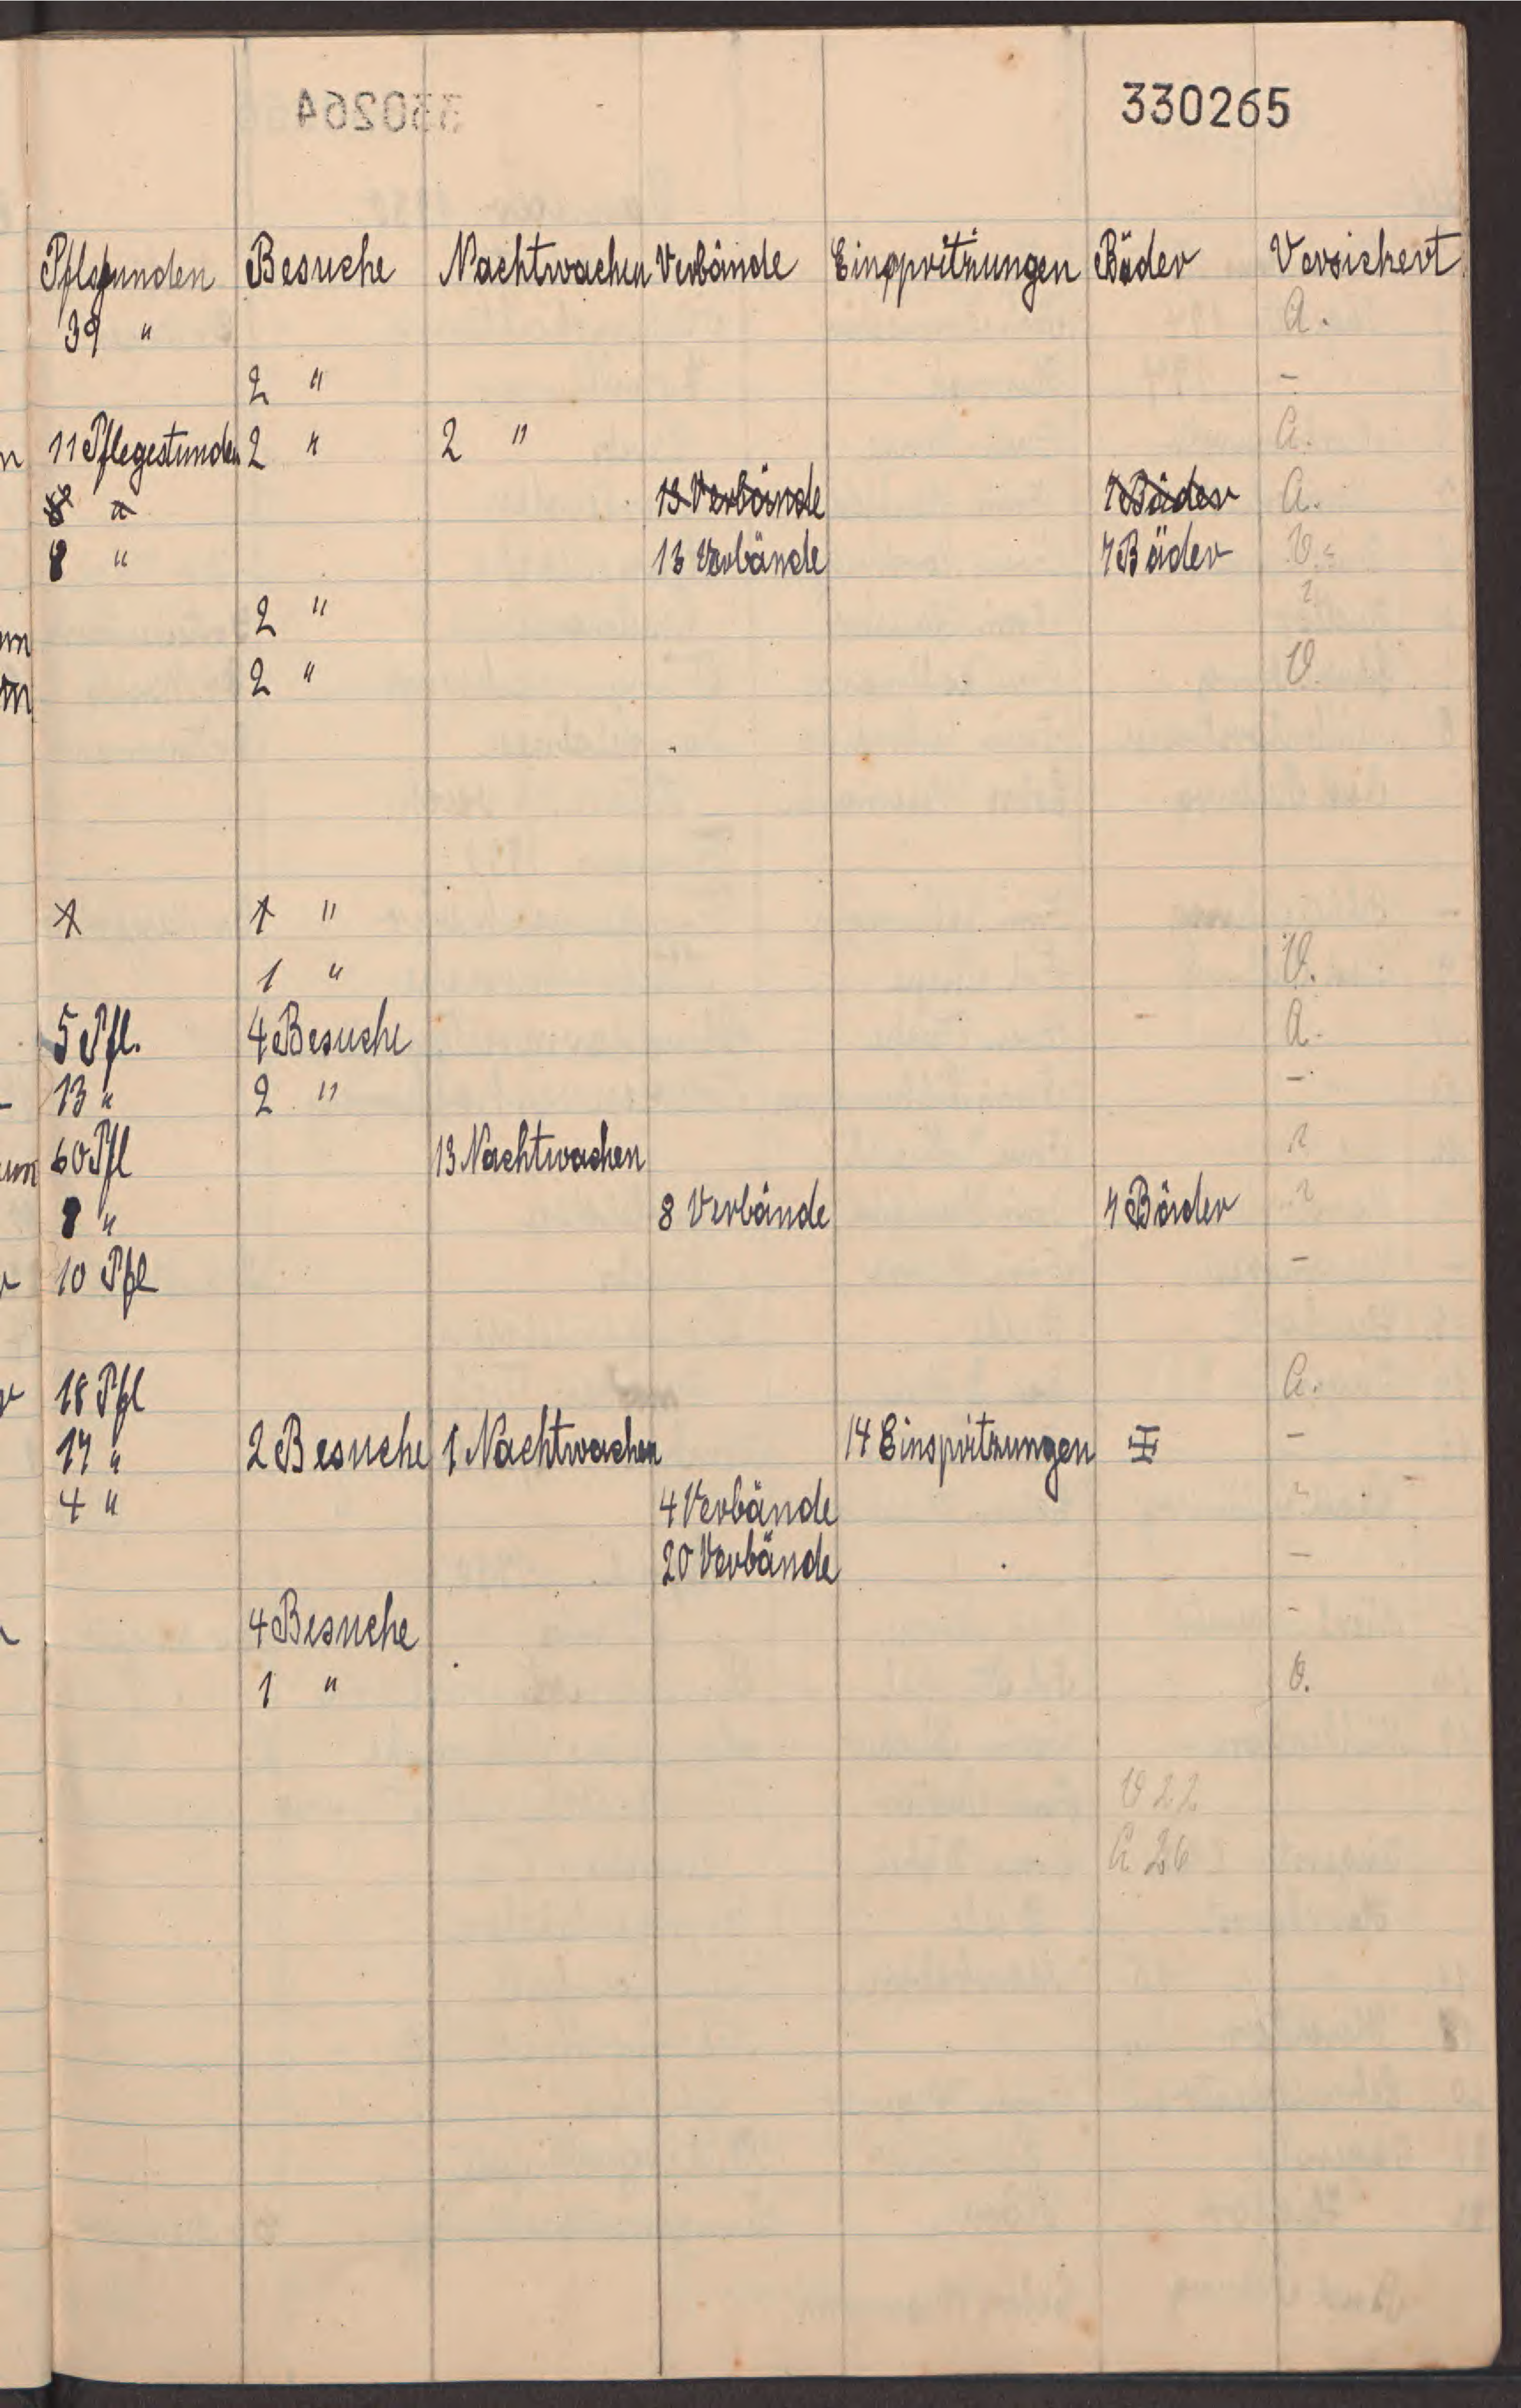 330265
Pflstunden Besuche Nachtwachen Verbände Einspritzungen Bäder Versichert
39 " A.
2 " -
11 Pflegestunden 2 " 2 " A.
8 " 13 Verbände 7 Bäder A.
8 " 13 Verbände 7 Bäder V.
2 "
2 " V.
1 1 "
1 " V.
5 Pfl. 4 Besuche A.
13 " 2 " -
60 Pfl 13 Nachtwachen
8 " 8 Verbände 7 Bäder
10 Pfl -
18 Pfl A.
17 " 2 Besuche 1 Nachtwachen 14 Einspritzungen -
4 " 4 Verbände
20 Verbände -
4 Besuche -
1 " V.
V 22
A 26